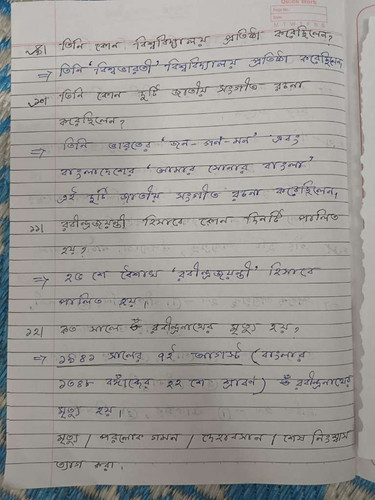 ৯। তিনি কোন বিশ্ববিদ্যালয় প্রতিষ্ঠা করেছিলেন?
⇒ তিনি 'বিশ্বভারতী' বিশ্ববিদ্যালয় প্রতিষ্ঠা করেছিলেন
১০। তিনি কোন দুটি জাতীয় সংগীত রচনা
করেছিলেন?
⇒ তিনি ভারতের 'জন-গন-মন' এবং
বাংলাদেশের 'আমার সোনার বাংলা'
এই দুটি জাতীয় সংগীত রচনা করেছিলেন।
১১। রবীন্দ্রজয়ন্তী হিসাবে কোন দিনটি পালিত
হয়?
⇒ ২৫ শে বৈশাখ 'রবীন্দ্রজয়ন্তী' হিসাবে
পালিত হয়।
১২। কত সালে রবীন্দ্রনাথের মৃত্যু হয়?
⇒ ১৯৪১ সালের ৭ই আগস্ট (বাংলার
১৩৪৮ বঙ্গাব্দের ২২ শে শ্রাবণ) রবীন্দ্রনাথের
মৃত্যু হয়।
মৃত্যু / পরলোক গমন / দেহাবসান / শেষ নিঃশ্বাস
ত্যাগ করা।